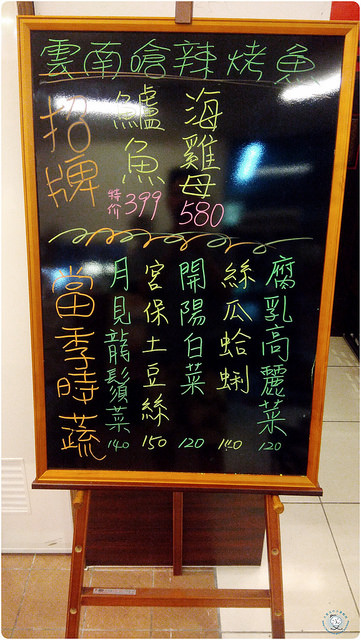 雲南嗆辣烤魚
招牌
鱸魚
特价399
海雞母
580
當季時蔬
月見龍鬚菜 140
宮保土豆絲 150
開陽白菜 120
絲瓜蛤蜊 140
腐乳高麗菜 120